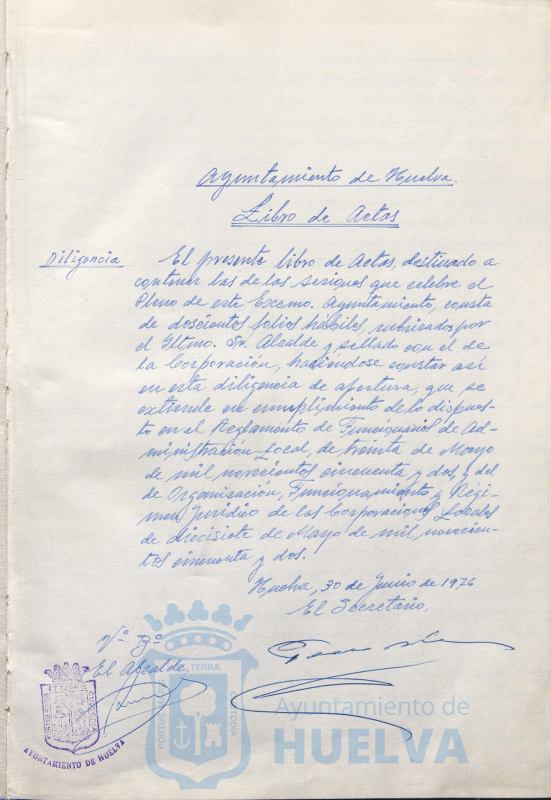 Ayuntamiento de Huelva.
Libro de Actas
Diligencia
El presente libro de Actas, destinado a
contener las de las sesiones que celebre el
Pleno de este Excmo. Ayuntamiento, consta
de doscientos folios hábiles, rubricados por
el Iltmo. Sr. Alcalde y sellado con el de
la Corporación, haciéndose constar así
en esta diligencia de apertura, que se
extiende en cumplimiento de lo dispues-
to en el Reglamento de Funcionarios de Ad-
ministración Local, de treinta de Mayo
de mil novecientos cincuenta y dos, y del
de Organización, Funcionamiento y Régi-
men Jurídico de las Corporaciones Locales
de diecisiete de Mayo de mil novecien-
tos cincuenta y dos.
Huelva, 30 de Junio de 1976
El Secretario,
Vº Bº
El Alcalde,
AYUNTAMIENTO DE HUELVA
PORTUS
TERRÆ
CUSTODIA
Ayuntamiento de
HUELVA